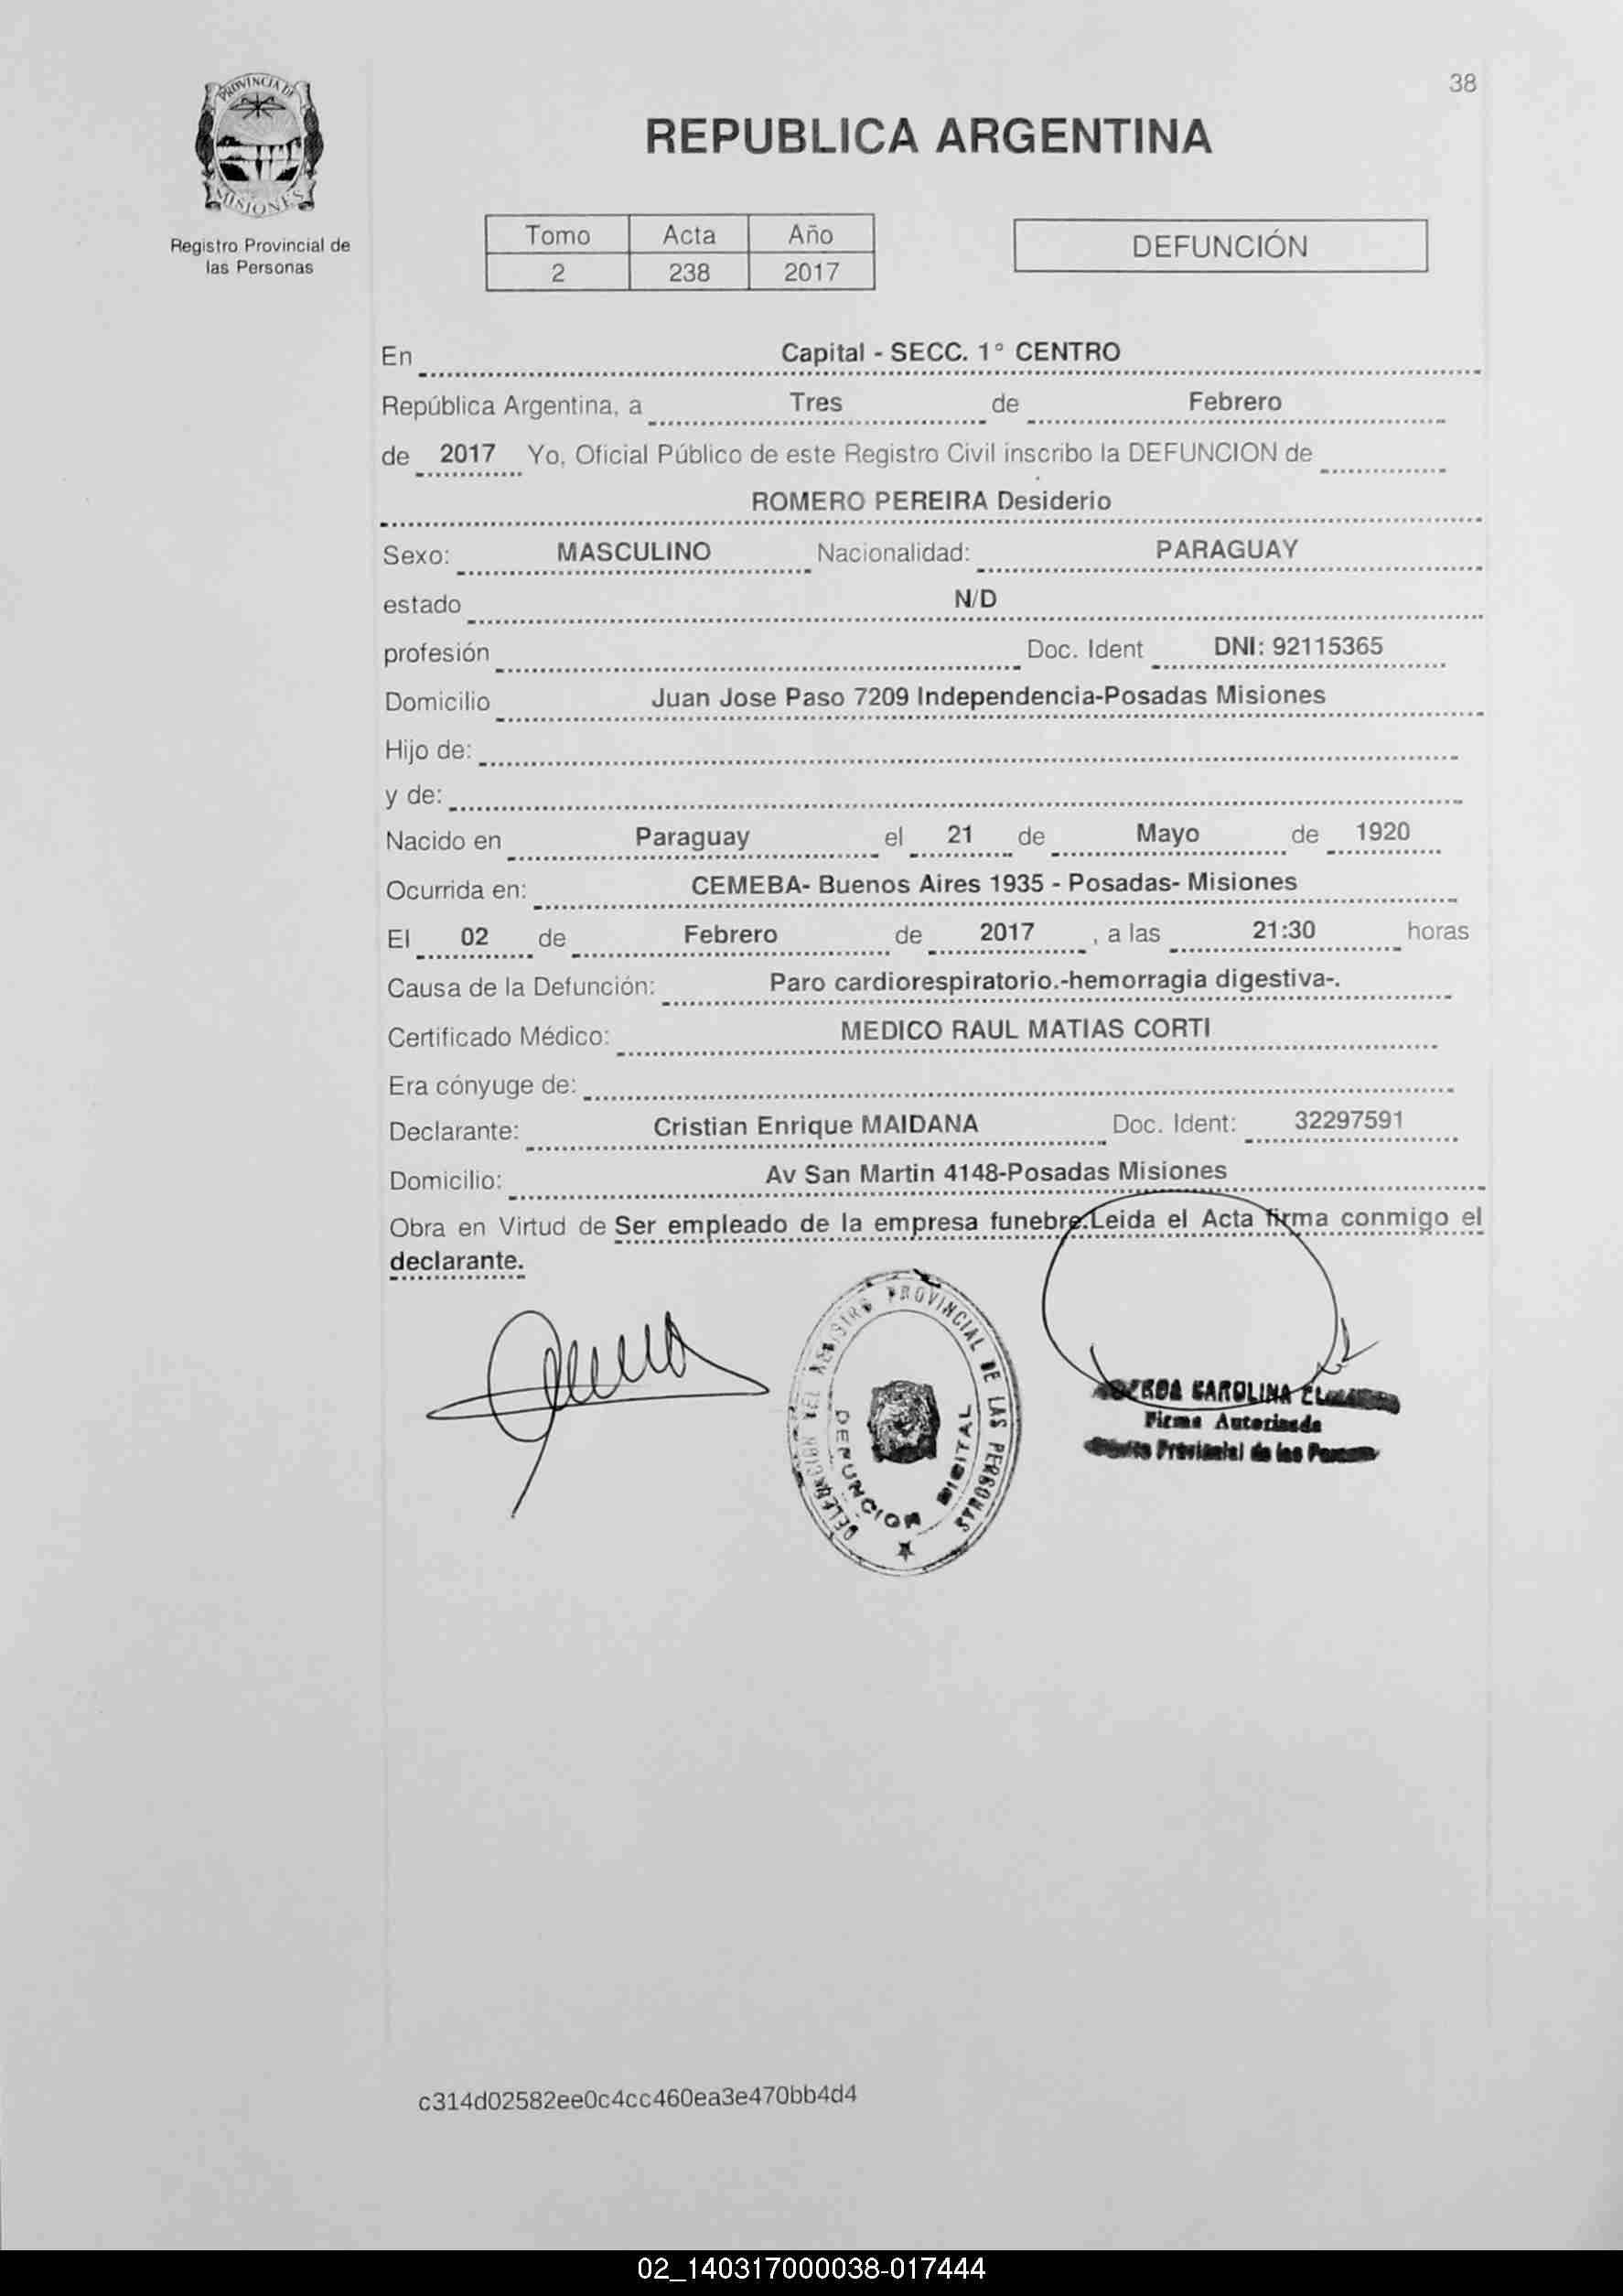 38
PROVINCIA DE
MISIONES
Registro Provincial de
las Personas
REPUBLICA ARGENTINA
Tomo Acta Año
2 238 2017
DEFUNCIÓN
En Capital - SECC. 1° CENTRO
República Argentina, a Tres de Febrero
de 2017 Yo, Oficial Público de este Registro Civil inscribo la DEFUNCION de
ROMERO PEREIRA Desiderio
Sexo: MASCULINO Nacionalidad: PARAGUAY
estado N/D
profesión Doc. Ident DNI: 92115365
Domicilio Juan Jose Paso 7209 Independencia-Posadas Misiones
Hijo de:
y de:
Nacido en Paraguay el 21 de Mayo de 1920
Ocurrida en: CEMEBA- Buenos Aires 1935 - Posadas- Misiones
El 02 de Febrero de 2017 , a las 21:30 horas
Causa de la Defunción: Paro cardiorespiratorio.-hemorragia digestiva-.
Certificado Médico: MEDICO RAUL MATIAS CORTI
Era cónyuge de:
Declarante: Cristian Enrique MAIDANA Doc. Ident: 32297591
Domicilio: Av San Martin 4148-Posadas Misiones
Obra en Virtud de Ser empleado de la empresa funebre.Leida el Acta firma conmigo el
declarante.
DELEGACION DEL REGISTRO PROVINCIAL DE LAS PERSONAS
DEFUNCION DIGITAL
CAROLINA
Firma Autorizada
Provincial de las
c314d02582ee0c4cc460ea3e470bb4d4
02_140317000038-017444